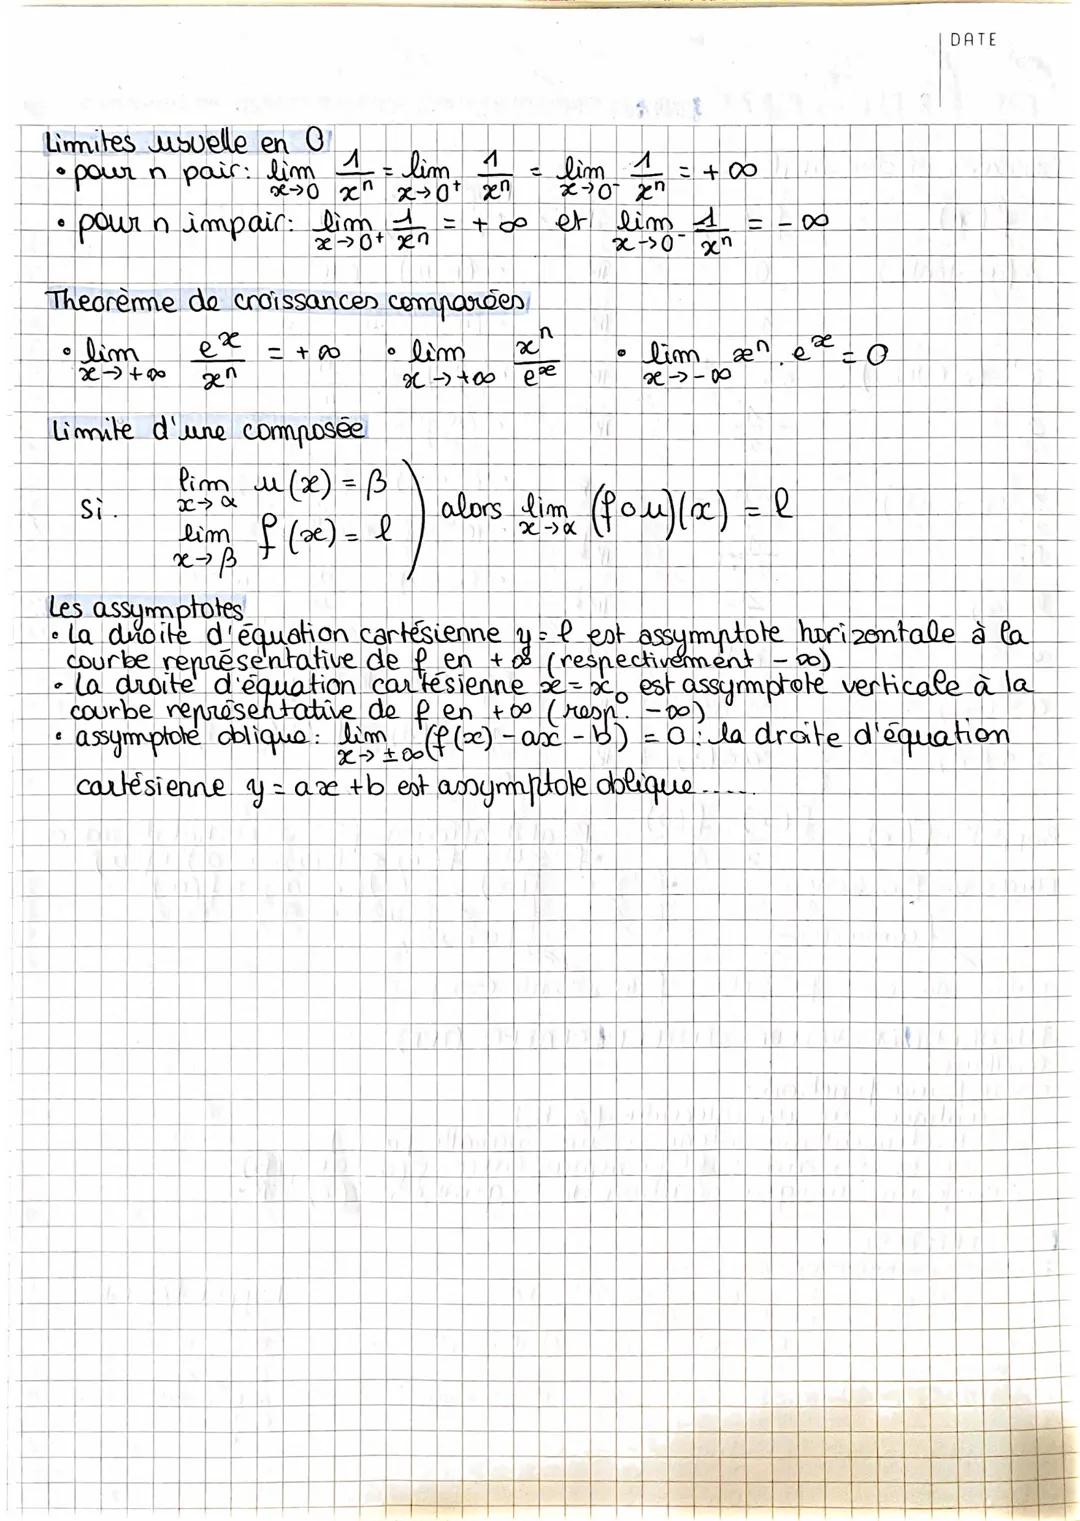 DATE
Limites usuelle en 0
• pour n pair: lim x→0 1/xⁿ = lim x→0⁺ 1/xⁿ = lim x→0⁻ 1/xⁿ = +∞
• pour n impair: lim x→0⁺ 1/xⁿ = +∞ et lim x→0⁻ 1/xⁿ = -∞
Theorème de croissances comparées
• lim x→+∞ eˣ/xⁿ = +∞ • lim x→+∞ xⁿ/eˣ • lim x→-∞ xⁿ.eˣ = 0
Limite d'une composée
lim x→α u(x) = β
Si. alors lim x→α (f∘u)(x) = l
lim x→β f(x) = l
Les assymptotes
• La droite d'équation cartésienne y = l est assymptote horizontale à la
courbe représentative de f en +∞ (respectivement -∞)
• La droite d'équation cartésienne x = x₀ est assymptote verticale à la
courbe représentative de f en +∞ (resp. -∞)
• assymptote oblique: lim x→±∞ (f(x) - ax - b) = 0 : la droite d'équation
cartésienne y = ax + b est assymptote oblique.....